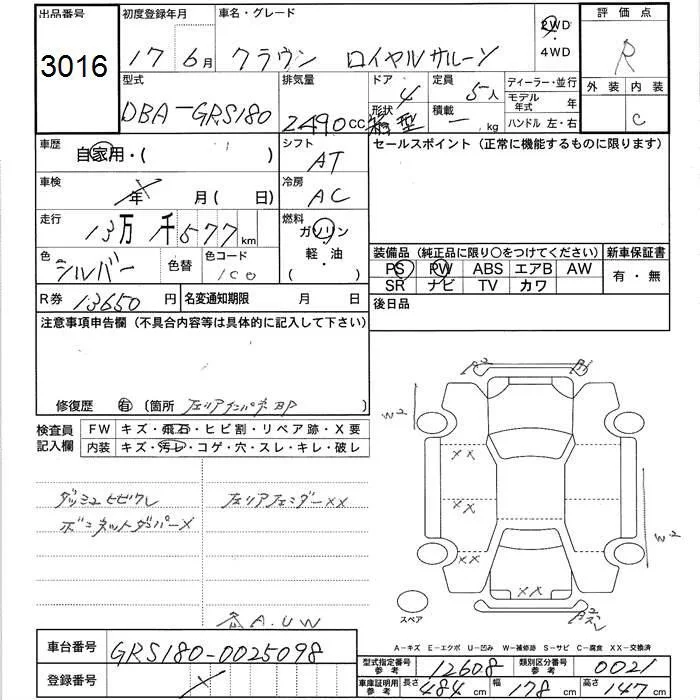 出品番号 初度登録年月 車名・グレード 2WD 評価点
3016 17年6月 クラウン ロイヤルサルーン 4WD R
型式 排気量 ドア 4 定員 5人 ディーラー・並行 外装 内装
DBA-GRS180 2490cc 形状 箱型 積載 ー kg モデル年式 年 C
ハンドル 左・右
車歴 自家用・( ) シフト AT セールスポイント(正常に機能するものに限ります)
車検 年 月(日) 冷房 AC
走行 13万 千577km 燃料 ガソリン
軽・油
( )
色 シルバー 色替 色コード 1C0
装備品(純正品に限り○をつけてください) 新車保証書
PS PW ABS エアB AW 有・無
SR ナビ TV カワ
R券 13650円 名変通知期限 月 日 後日品
注意事項申告欄(不具合内容等は具体的に記入して下さい)
修復歴 有 〔箇所 左リアインパネ部P 〕
検査員記入欄 FW キズ・飛石・ヒビ割・リペア跡・X要
内装 キズ・汚レ・コゲ・穴・スレ・キレ・破レ
A2
W2
XX
XX
XX
XX
W2
ダッシュヒビワレ 左リアフェンダーXX
ボンネットダンパーX
A.UW
スペア
A-キズ E-エクボ U-凹み W-補修跡 S-サビ C-腐食 XX-交換済
車台番号 GRS180-0025098
登録番号
型式指定番号 参考 12608 類別区分番号 参考 0021
車庫証明用 参考 長さ 484cm 幅 178cm 高さ 147cm